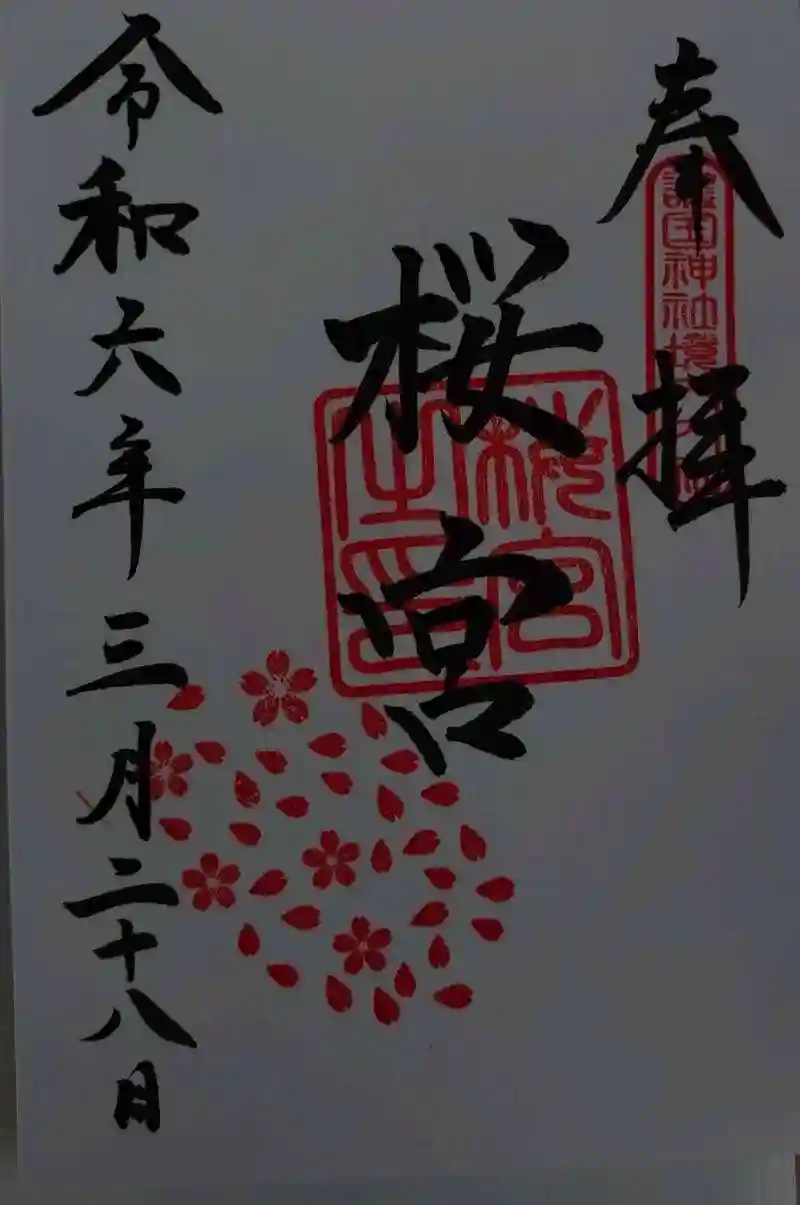 奉拝
護国神社境内
桜宮
桜宮之印
令和六年三月二十八日